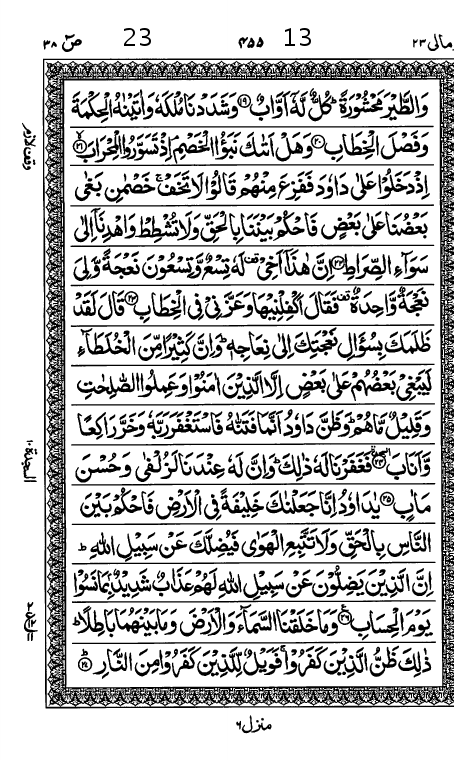 ومالی ٢٣ 13 ٤٥٥ 23 صٓ ٣٨
وَالطَّيْرَ مَحْشُوْرَةً ؕ كُلٌّ لَّهٗۤ اَوَّابٌ ﴿۱۹﴾ وَشَدَدْنَا مُلْكَهٗ وَاٰتَيْنٰهُ الْحِكْمَةَ
وَفَصْلَ الْخِطَابِ ﴿۲۰﴾ وَهَلْ اَتٰىكَ نَبَؤُا الْخَصْمِ ۘ اِذْ تَسَوَّرُوا الْمِحْرَابَ ﴿۲۱﴾
اِذْ دَخَلُوْا عَلٰى دَاوٗدَ فَفَزِعَ مِنْهُمْ قَالُوْا لَا تَخَفْ ۚ خَصْمٰنِ بَغٰى
بَعْضُنَا عَلٰى بَعْضٍ فَاحْكُمْ بَيْنَنَا بِالْحَقِّ وَلَا تُشْطِطْ وَاهْدِنَاۤ اِلٰى
سَوَآءِ الصِّرَاطِ ﴿۲۲﴾ اِنَّ هٰذَاۤ اَخِيْ ۫ لَهٗ تِسْعٌ وَّتِسْعُوْنَ نَعْجَةً وَّلِيَ
نَعْجَةٌ وَّاحِدَةٌ ۫ فَقَالَ اَكْفِلْنِيْهَا وَعَزَّنِيْ فِي الْخِطَابِ ﴿۲۳﴾ قَالَ لَقَدْ
ظَلَمَكَ بِسُؤَالِ نَعْجَتِكَ اِلٰى نِعَاجِهٖ ؕ وَاِنَّ كَثِيْرًا مِّنَ الْخُلَطَآءِ
لَيَبْغِيْ بَعْضُهُمْ عَلٰى بَعْضٍ اِلَّا الَّذِيْنَ اٰمَنُوْا وَعَمِلُوا الصّٰلِحٰتِ
وَقَلِيْلٌ مَّا هُمْ ؕ وَظَنَّ دَاوٗدُ اَنَّمَا فَتَنّٰهُ فَاسْتَغْفَرَ رَبَّهٗ وَخَرَّ رَاكِعًا
وَّاَنَابَ ﴿۲۴﴾ فَغَفَرْنَا لَهٗ ذٰلِكَ ؕ وَاِنَّ لَهٗ عِنْدَنَا لَزُلْفٰى وَحُسْنَ
مَاٰبٍ ﴿۲۵﴾ يٰدَاوٗدُ اِنَّا جَعَلْنٰكَ خَلِيْفَةً فِي الْاَرْضِ فَاحْكُمْ بَيْنَ
النَّاسِ بِالْحَقِّ وَلَا تَتَّبِعِ الْهَوٰى فَيُضِلَّكَ عَنْ سَبِيْلِ اللهِ ؕ
اِنَّ الَّذِيْنَ يَضِلُّوْنَ عَنْ سَبِيْلِ اللهِ لَهُمْ عَذَابٌ شَدِيْدٌۢ بِمَا نَسُوْا
يَوْمَ الْحِسَابِ ﴿۲۶﴾ وَمَا خَلَقْنَا السَّمَآءَ وَالْاَرْضَ وَمَا بَيْنَهُمَا بَاطِلًا ؕ
ذٰلِكَ ظَنُّ الَّذِيْنَ كَفَرُوْا ۚ فَوَيْلٌ لِّلَّذِيْنَ كَفَرُوْا مِنَ النَّارِ ﴿۲۷﴾
وقف لازم
السجدة ١٠
منزل ٦